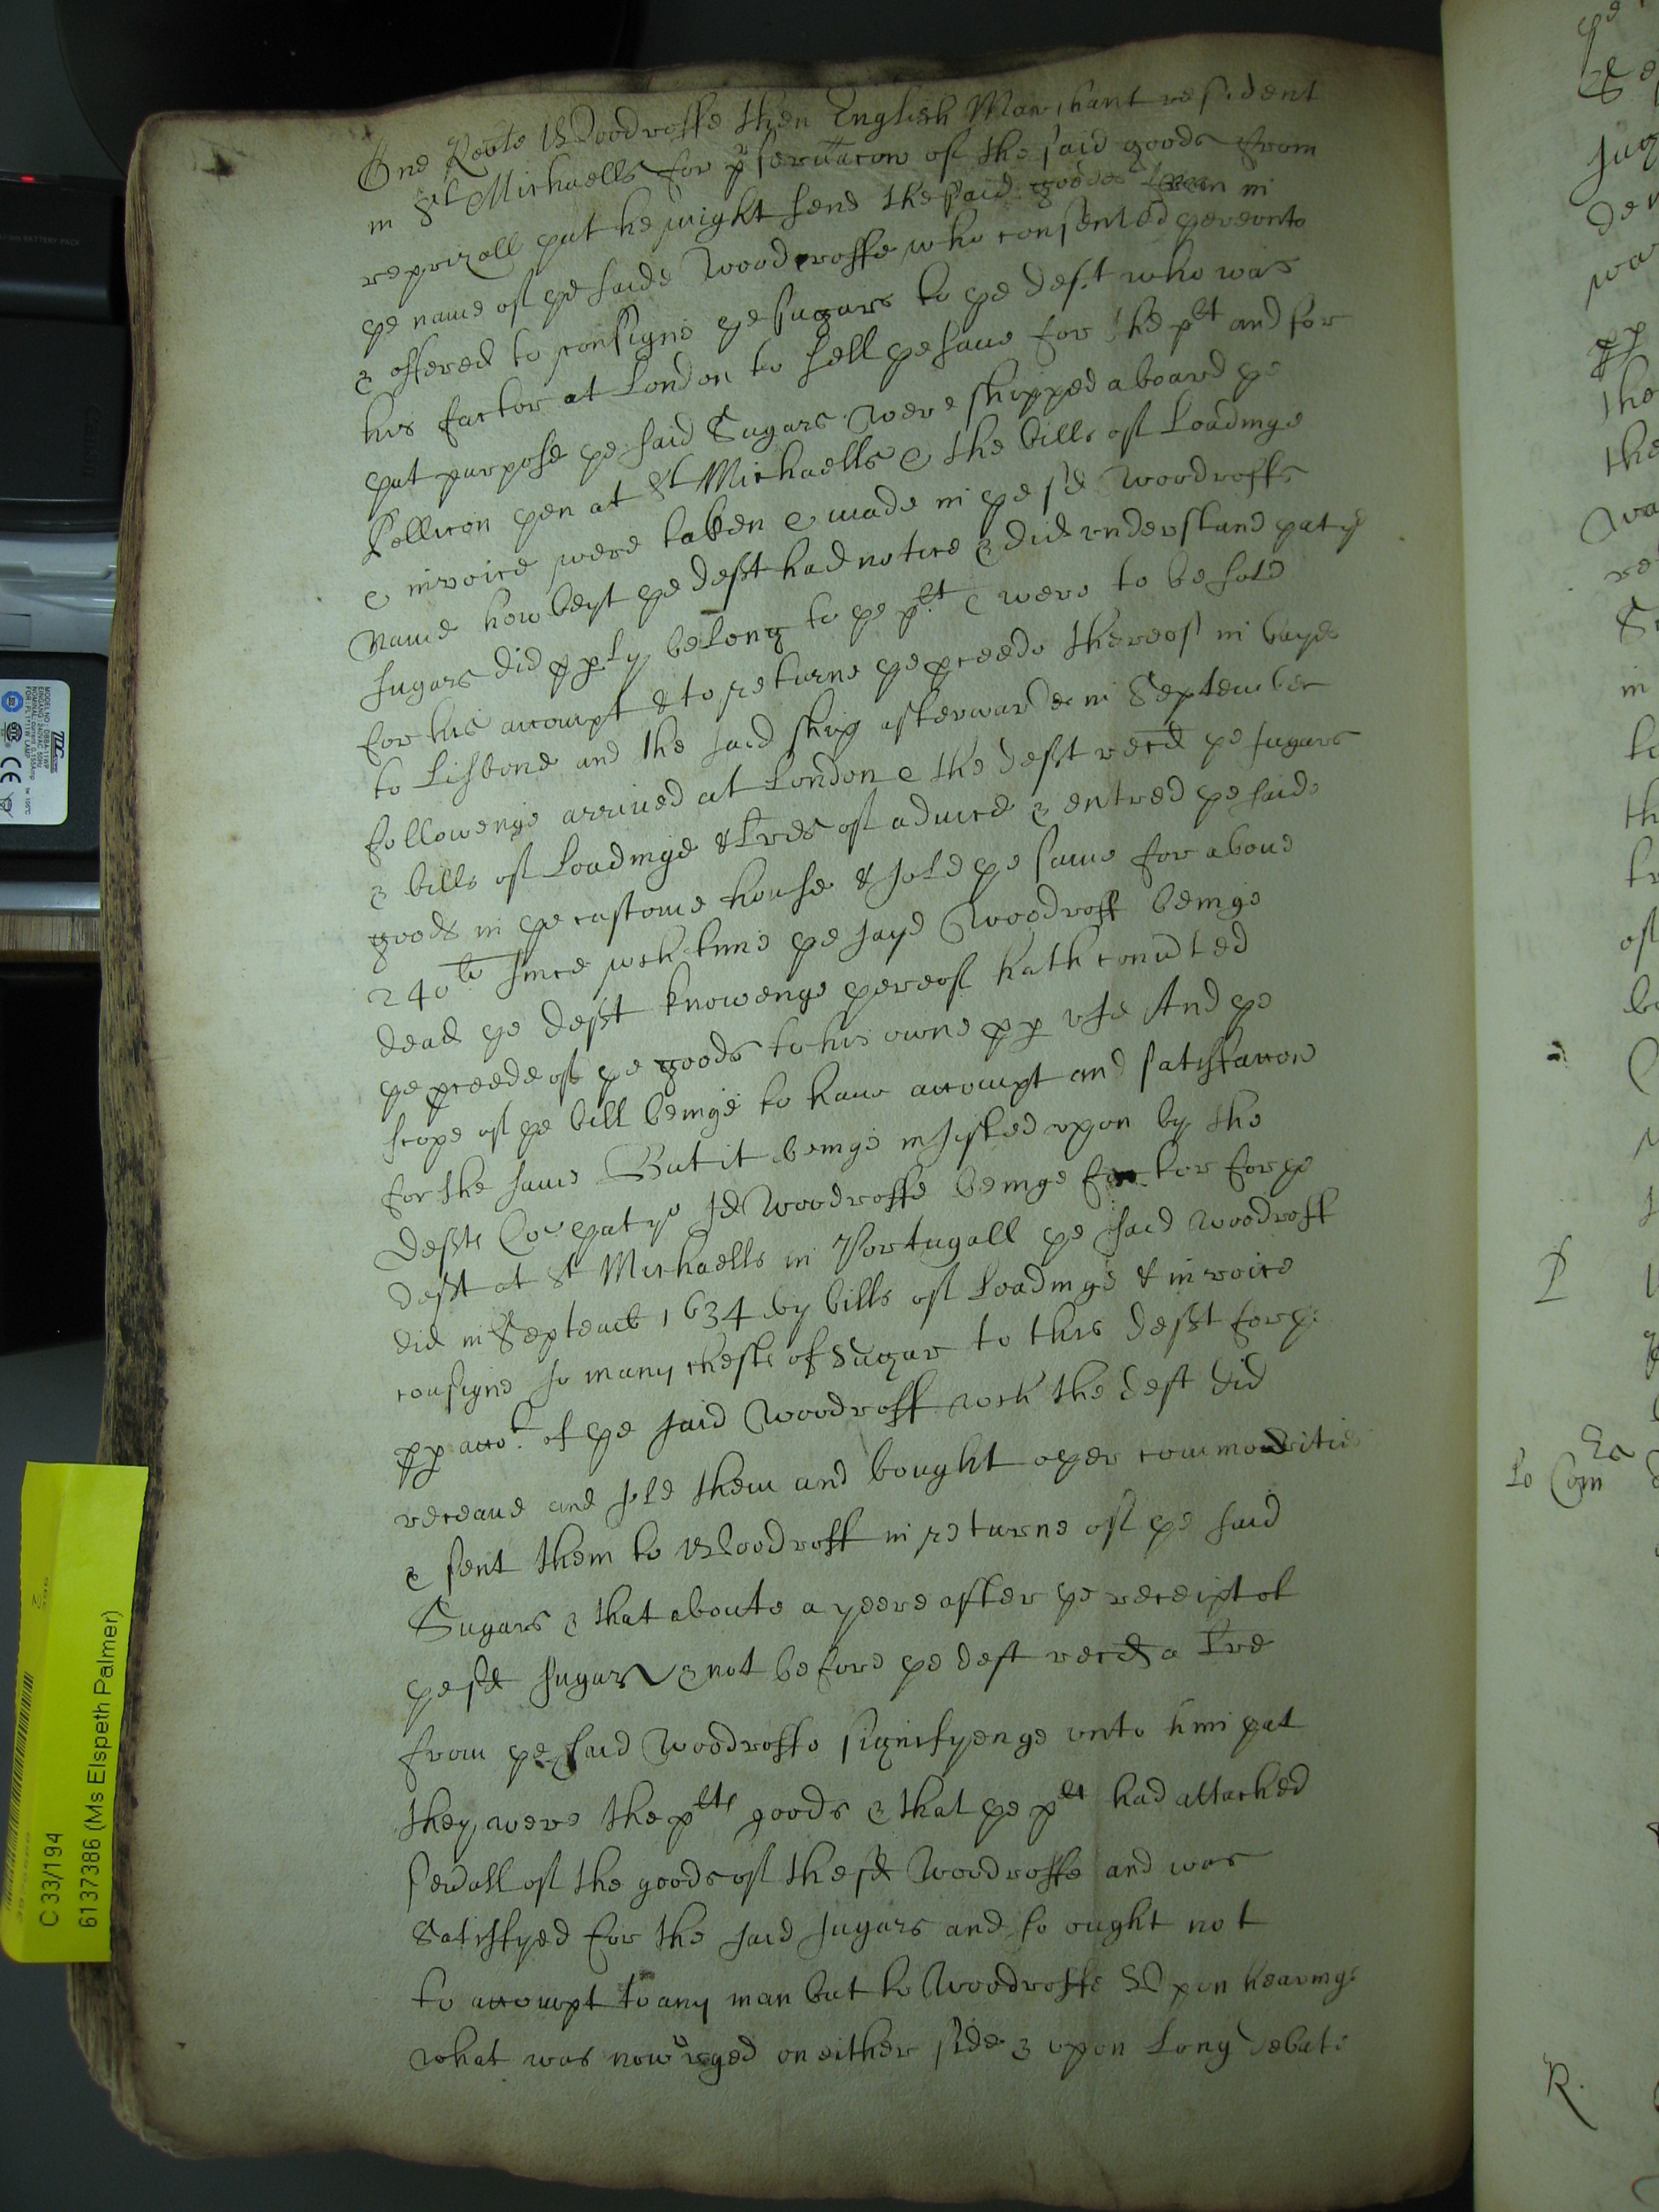 One Robte Woodroffe then English Marchant resident
in St Michaells for p̱servacon of the said goods from
reprizall yat he might send the said goodes hether in
ye name of ye saide Woodroffe who consented yereunto
& offered to consigne ye sugars to ye deft who was
his factor at London to sell ye same for the plt and for
yat purpose ye said Sugars were shipped aboard ye
Pellicon yen at St Michaells & the bills of Loadinge
& invoice were taken & made in ye sd Woodroffs
name howbeyt ye defft had notice & did understand yat ye
sugars did pply belong to ye plt & were to be sold
for his accompt & to returne ye pceede thereof in bayes
to Lisbone and the said ship afterwardes in September
followenge arrived at London & the defft recd ye sugars
& bills of Loadinge & Lres of advice & entred ye saide
goods in ye custome house & sold ye same for above
240li since wch time ye sayd Woodroff beinge
dead ye defft knowenge yereof hath convted
ye pceede of ye goods to his owne pp use And ye
scope of ye bill beinge to have accompt and satisfaccon
for the same But it beinge insisted upon by the
deffts Co: yat ye sd Woodroffe beinge factor for ye
defft at St Michaells in Portugall ye said Woodroff
did in Septemb 1634 by bills of Loadinge & invoice
consigne so many chests of Sugar to this defft for ye
pp acco:t of ye said Woodroff wch the deft did
receave and sold them and bought oyer commodities
& sent them to Woodroff in returne of ye said
Sugars & that aboute a yeere after ye receipt of
ye sd sugars & not before ye deft recd a Lre
from ye said Woodroffe signifyenge unto him yat
they were the plts goods & that ye plt had attached
sevall of the goods of the sd Woodroffe and was
Satisfyed for the said sugars and so ought not
to accompt to any man but to Woodroffe Upon hearinge
what was now urged on either side & upon Long debate
P
Lo Com
R.
C 33/194
6137386 (Ms Elspeth Palmer)